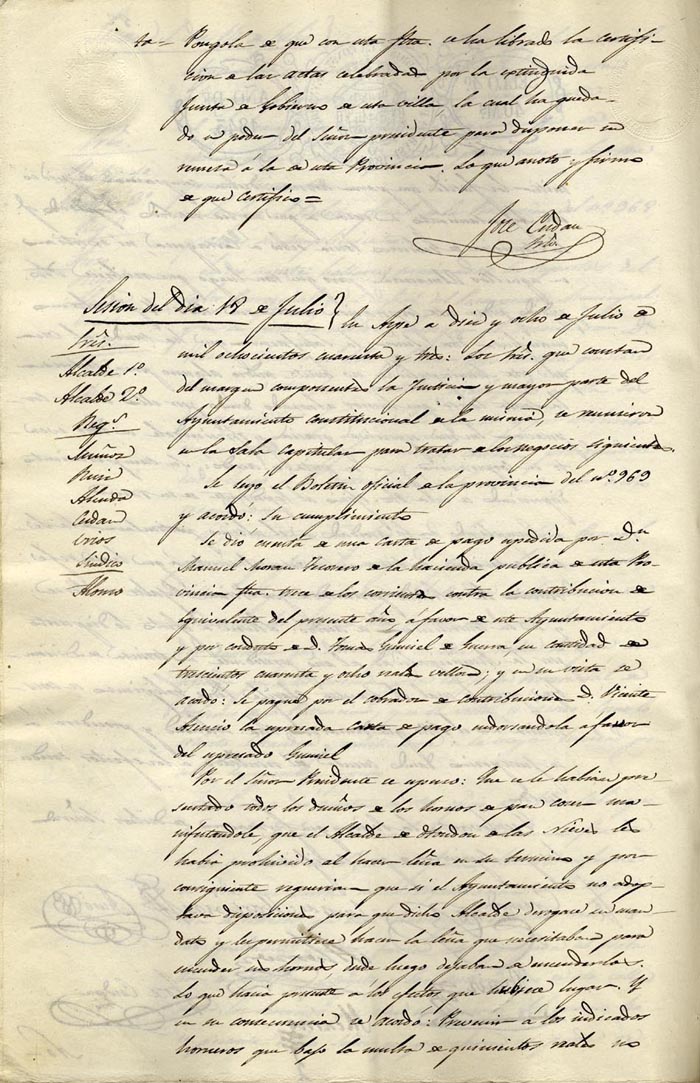 ta= Pongola de que con esta fha. se ha librado la certifi-
cion de las actas celebradas por la extinguida
Junta de Gobierno de esta villa la cual ha queda-
do a poder del Señor presidente para disponer su
remesa á la de esta Provincia. Lo que anoto y firmo
de que certifico=
Jose Cerdan
Srio.
Sesion del dia 18 de Julio} En Aspe a diez y ocho de Julio de
Sres. mil ochocientos cuarenta y tres: Los Sres. que constan
Alcalde 1º del margen componentes la Justicia y mayor parte del
Alcalde 2º Ayuntamiento constitucional de la misma, se reunieron
Regs. en la Sala Capitular para tratar de los negocios siguientes.
Muñoz Se leyó el Boletin oficial de la provincia del nº 969
Ruiz y acordo: Su cumplimiento
Almda Se dio cuenta de una carta de pago espedida por Dn
Cerdan Manuel Moran Tesorero de la hacienda publica de esta Pro-
Erios vincia fha. trece de los corrientes contra la contribucion de
Sindico Equivalente del presente año, á favor de este Ayuntamiento
Alonso y por conducto de D. Tomas Gumiel de Guerra, en cantidad de
trescientos cuarenta y ocho reales vellon; y en su vista se
acordó: Se pague por el cobrador de contribuciones D. Vicente
Asencio la espresada carta de pago endosandola á favor
del espresado Gumiel
Por el Señor Presidente se espuso: Que se le habian pre-
sentado todos los dueños de los hornos de pan cocer ma-
nifestandole que el Alcalde de Hondon de las Nieves les
habia prohivido al hacer leña en su termino y por
consiguiente requerian que si el Ayuntamiento no adop-
tava disposiciones para que dicho Alcalde derogace su man-
dato y les permitiese hacer la leña que necesitaban para
encender sus hornos desde luego dejaban de encenderlos.
Lo que hacia presente á los efectos que hubiese lugar. Y
en su consecuencia se acordó: Prevenir á los indicados
horneros que bajo la multa de quinientos reales no